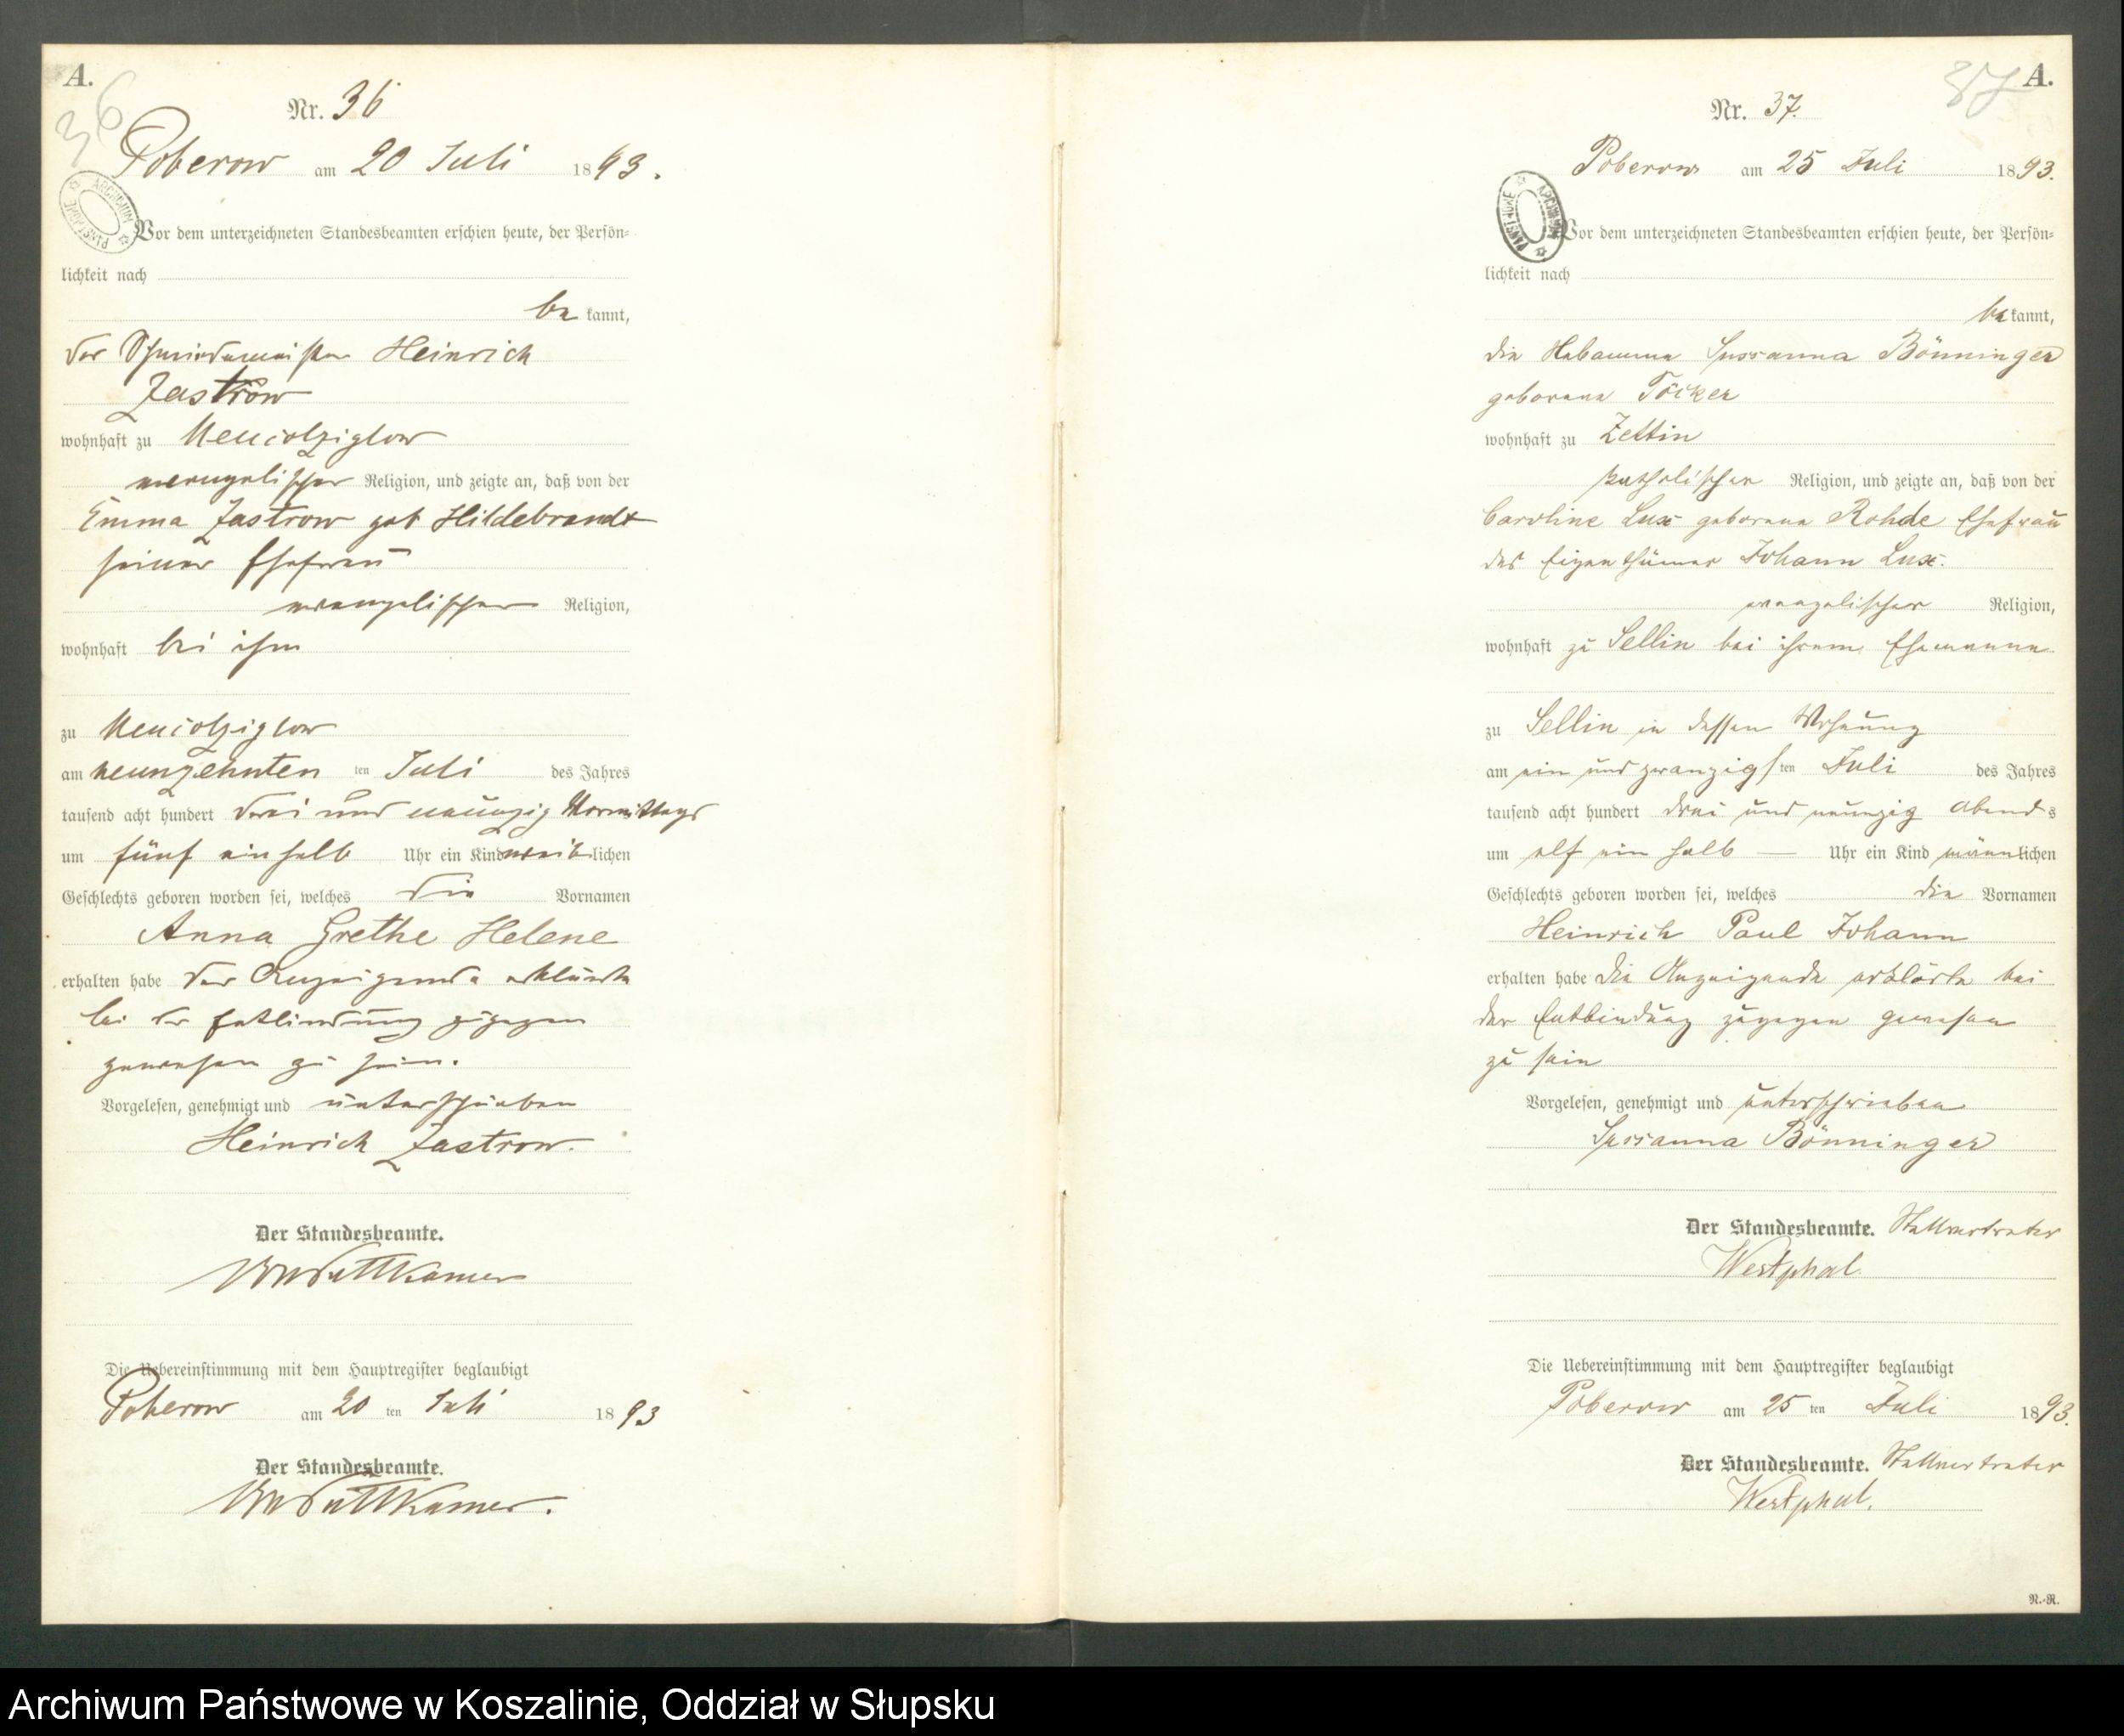 A.
36
Nr. 36
Poberow am 20 Juli 1893.
ARCHIWUM PAŃSTWOWE
Vor dem unterzeichneten Standesbeamten erschien heute, der Persön=
lichkeit nach
be kannt,
der Schmiedemeister Heinrich
Zastrow
wohnhaft zu Neucolziglow
evangelischer Religion, und zeigte an, daß von der
Emma Zastrow geb Hildebrandt
seiner Ehefrau
evangelischer Religion,
wohnhaft bei ihm
zu Neucolziglow
am neunzehnten ten Juli des Jahres
tausend acht hundert drei und neunzig Vormittags
um fünf ein halb Uhr ein Kind weiblichen
Geschlechts geboren worden sei, welches die Vornamen
Anna Grethe Helene
erhalten habe der Anzeigende erklärte
bei der Entbindung zugegen
gewesen zu sein.
Vorgelesen, genehmigt und unterschrieben
Heinrich Zastrow.
Der Standesbeamte.
von Puttkamer
Die Uebereinstimmung mit dem Hauptregister beglaubigt
Poberow am 20 ten Juli 1893
Der Standesbeamte.
von Puttkamer.
37
A.
Nr. 37.
Poberow am 25 Juli 1893.
ARCHIWUM PAŃSTWOWE
Vor dem unterzeichneten Standesbeamten erschien heute, der Persön=
lichkeit nach
be kannt,
die Hebamme Sussanna Bönninger
geborene Töcker
wohnhaft zu Zettin
katholischer Religion, und zeigte an, daß von der
Caroline Lux geborene Rohde Ehefrau
des Eigenthümer Johann Lux.
evangelischer Religion,
wohnhaft zu Sellin bei ihrem Ehemanne
zu Sellin in dessen Wohnung
am ein und zwanzigsten Juli des Jahres
tausend acht hundert drei und neunzig Abends
um elf ein halb — Uhr ein Kind männlichen
Geschlechts geboren worden sei, welches die Vornamen
Heinrich Paul Johann
erhalten habe Die Anzeigende erklärte bei
der Entbindung zugegen gewesen
zu sein
Vorgelesen, genehmigt und unterschrieben
Sussanna Bönninger
Der Standesbeamte. Stellvertreter
Westphal.
Die Uebereinstimmung mit dem Hauptregister beglaubigt
Poberow am 25 ten Juli 1893.
Der Standesbeamte. Stellvertreter
Westphal.
N.-R.
Archiwum Państwowe w Koszalinie, Oddział w Słupsku